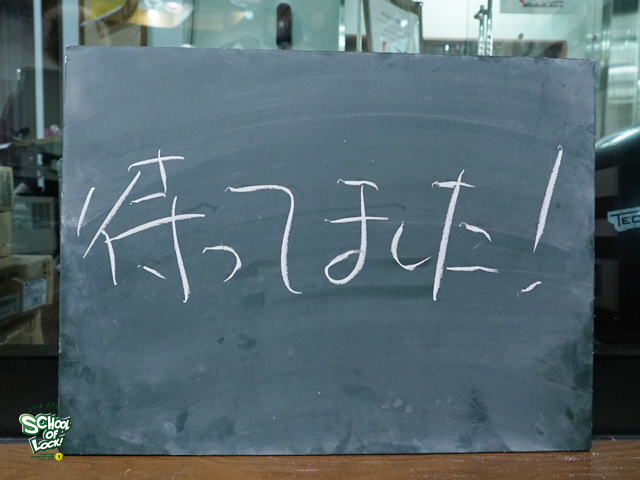 待ってました!
SCHOOL
OF
LOCK!
TEC